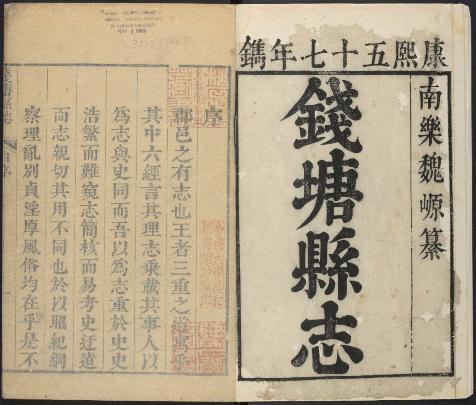 康熙五十七年鐫
南樂魏㟲纂
錢塘縣志
序
郡邑之有志也王者三重之道寓乎
其中六經言其理志乘載其事人以
為志與史同而吾以為志重於史史
浩繁而難窺志簡核而易考史迂遠
而志親切其用不同也於以昭紀綱
察理亂別貞淫厚風俗均在乎是不